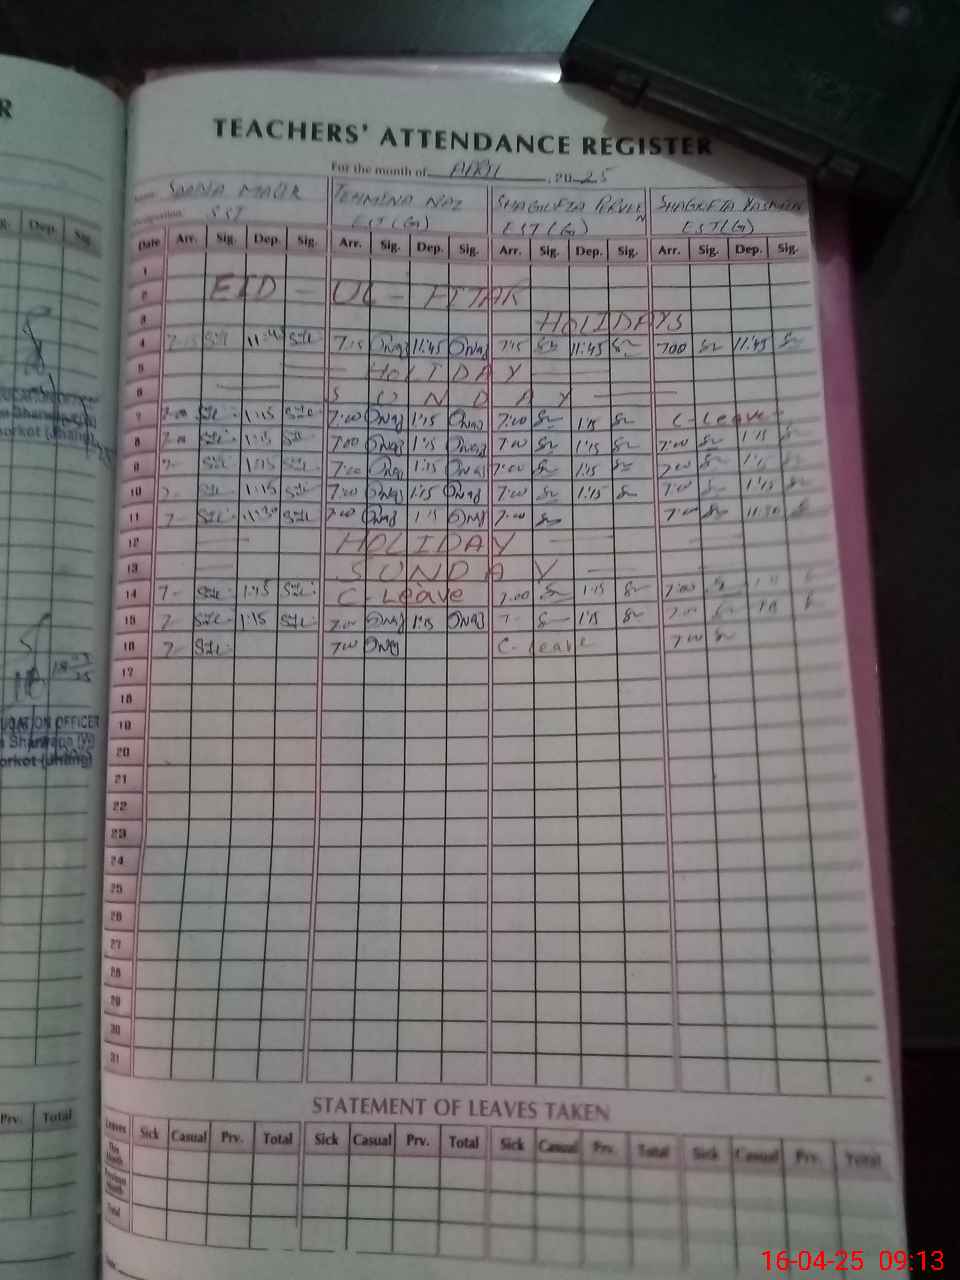 R
TEACHERS' ATTENDANCE REGISTER
For the month of APRIL , 20 25
Name SADIA MALIK TEHMINA NAZ SHAGUFTA PERVEEN SHAGUFTA YASMEEN
Designation SST EST (G) EST (G) EST (G)
Date Arr. Sig. Dep. Sig. Arr. Sig. Dep. Sig. Arr. Sig. Dep. Sig. Arr. Sig. Dep. Sig.
1
2 EID - UL - FITAR
3 HOLIDAYS
4 7:15 11:45 7:15 11:45 7:15 11:45 7:00 11:45
5 HOLIDAY
6 SUNDAY
7 7:00 1:15 7:00 1:15 7:00 1:15 C-Leave
8 7:00 1:15 7:00 1:15 7:00 1:15 7:00 1:15
9 7- 1:15 7:00 1:15 7:00 1:15 7:00 1:15
10 7- 1:15 7:00 1:15 7:00 1:15 7:00 1:15
11 7- 11:30 7:00 7:00 7:00 11:30
12 HOLIDAY
13 SUNDAY
14 7- 1:15 C-Leave 7:00 1:15 7:00 1:15
15 7- 1:15 7:00 1:15 7- 1:15 7:00 1:15
16 7- 7:00 C-Leave 7:00
17
18
19
20
21
22
23
24
25
26
27
28
29
30
31
STATEMENT OF LEAVES TAKEN
Leaves Sick Casual Prv. Total Sick Casual Prv. Total Sick Casual Prv. Total Sick Casual Prv. Total
This Month
Previous Month
Total
Dep. Sig.
Prv. Total
16-04-25 09:13